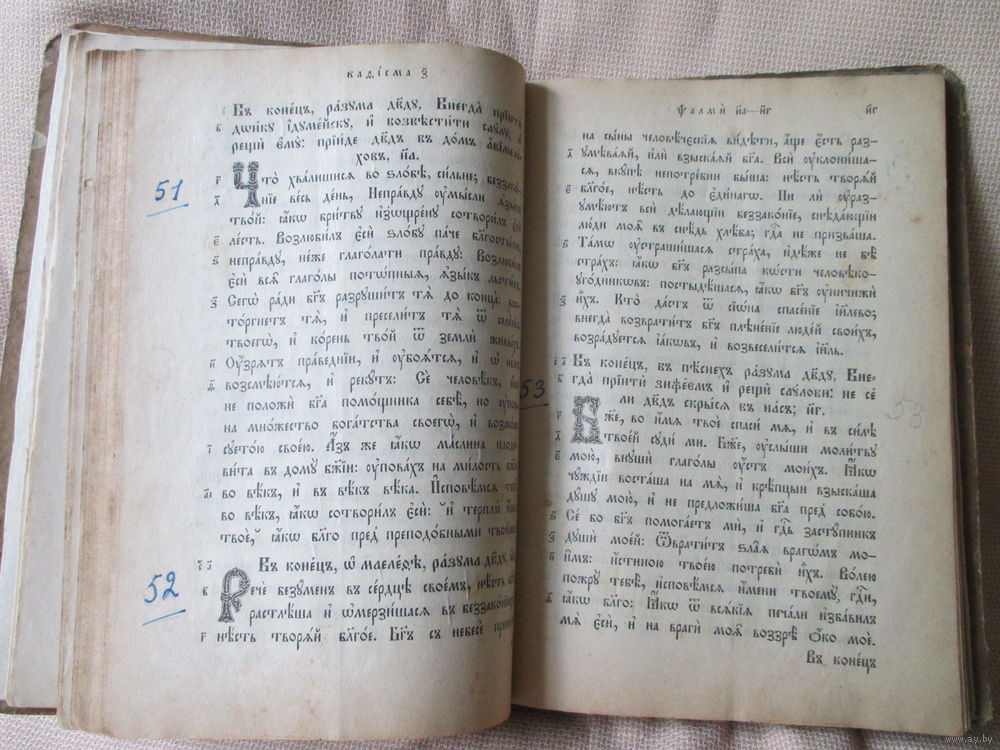 каѳі́сма з҃
Въ коне́цъ, ра́зума дв҃ду, Внегда̀ прїитѝ
дѡи́ку і҆дꙋме́йскꙋ, и҆ возвѣсти́ти саꙋ́лꙋ, и҆
рещѝ є҆мꙋ̀: прїи́де дв҃дъ въ до́мъ а҆вїмеле́-
ховъ, н҃а.
51
Что̀ хва́лишисѧ во ѕло́бѣ, си́льне; беззако́-
нїе ве́сь де́нь, Непра́вдꙋ ᲂу҆мы́сли ѧ҆зы́къ
тво́й: ꙗ҆́кѡ бри́твꙋ и҆зѡщре́нꙋ сотвори́лъ є҆сѝ
ле́сть. Возлюби́лъ є҆сѝ ѕло́бꙋ па́че бл҃госты́ни,
непра́вдꙋ, не́же глаго́лати пра́вдꙋ: Возлюби́лъ
є҆сѝ всѧ̑ глаго́лы пото́пныѧ, ѧ҆зы́къ льсти́въ.
Сегѡ̀ ра́ди бг҃ъ разрꙋши́тъ тѧ̀ до конца̀: вос-
то́ргнетъ тѧ̀, и҆ пресели́тъ тѧ̀ ѿ селе́нїѧ
твоегѡ̀, и҆ ко́рень тво́й ѿ землѝ живы́хъ.
Оу҆́зрѧтъ пра́веднїи, и҆ ᲂу҆боѧ́тсѧ, и҆ ѡ҆ не́мъ
возсмѣю́тсѧ, и҆ рекꙋ́тъ: Сѐ человѣ́къ, и҆́же
не положѝ бг҃а помо́щника себѣ̀, но ᲂу҆пова̀
на мно́жество бога́тства своегѡ̀, и҆ возмо́же
сꙋето́ю свое́ю. А҆́зъ же ꙗ҆́кѡ ма́слина плодо-
ви́та въ домꙋ̀ бж҃їи: ᲂу҆пова́хъ на ми́лость бж҃їю
во вѣ́къ, и҆ въ вѣ́къ вѣ́ка. И҆сповѣ́мсѧ тебѣ̀
во вѣ́къ, ꙗ҆́кѡ сотвори́лъ є҆сѝ: и҆ терплю̀ и҆́мѧ
твоѐ, ꙗ҆́кѡ бл҃го пред̾ преподо́бными твои́ми.
52
Въ коне́цъ, ѡ҆ маеле́ѳѣ, ра́зума дв҃дꙋ, н҃в.
Речѐ безꙋ́менъ въ се́рдцѣ свое́мъ, нѣ́сть бг҃ъ
растлѣ́ша и҆ ѡ҆мерзи́шасѧ въ беззако́нїихъ
нѣ́сть творѧ́й бл҃го́е. Бг҃ъ съ небесѐ прини́че
Ѱалмѝ н҃а—н҃г н҃г
на сы́ны человѣ́ческїѧ ви́дѣти, а҆́ще є҆́сть раз-
ꙋмѣва́ѧй, и҆лѝ взыска́ѧй бг҃а. Всѝ ᲂу҆клони́ша-
сѧ, вкꙋ́пѣ непотре́бни бы́ша: нѣ́сть творѧ́й
бл҃го́е, нѣ́сть до є҆ди́нагѡ. Ни лѝ ᲂу҆раз-
ꙋмѣ́ютъ всѝ дѣ́лающїи беззако́нїе, снѣда́ющїи
лю́ди моѧ̑ въ снѣ́дь хлѣ́ба; гдⷭ҇а не призва́ша.
Та́мѡ ᲂу҆страши́шасѧ стра́ха, и҆дѣ́же не бѣ̀
стра́хъ: ꙗ҆́кѡ бг҃ъ разсы́па кѡ́сти человѣко-
ᲂуго́дникѡвъ: постыдѣ́шасѧ, ꙗ҆́кѡ бг҃ъ ᲂу҆ничижѝ
и҆̀хъ. Кто̀ да́стъ ѿ сїѡ́на спасе́нїе і҆и҃лево;
внегда̀ возврати́тъ бг҃ъ плѣне́нїе люде́й свои́хъ,
возра́дꙋетсѧ і҆а́кѡвъ, и҆ возвесели́тсѧ і҆и҃ль.
Въ коне́цъ, въ пѣ́снехъ ра́зума дв҃дꙋ, Вне-
гда̀ прїитѝ зїфе́ємъ и҆ рещѝ саꙋ́лови: не се́
ли дв҃дъ скры́сѧ въ на́съ; н҃г.
53
Бж҃е, во и҆́мѧ твоѐ спаси́ мѧ, и҆ въ си́лѣ
твое́й сꙋди́ ми. Бж҃е, ᲂу҆слы́ши моли́твꙋ
мою̀, внꙋшѝ глаго́лы ᲂу҆́стъ мои́хъ. Ꙗ҆́кѡ
чꙋ́ждїи воста́ша на мѧ̀, и҆ крѣ́пцыи взыска́ша
дꙋ́шꙋ мою̀, и҆ не предложи́ша бг҃а пред̾ собо́ю.
Се́ бо бг҃ъ помога́етъ мѝ, и҆ гдⷭ҇ь застꙋ́пникъ
дꙋшѝ мое́й: Ѿврати́тъ ѕла̑ѧ врагѡ́мъ мо-
и҆̑мъ: и҆́стиною твое́ю потребѝ и҆̀хъ. Во́лею
пожрꙋ̀ тебѣ̀, и҆сповѣ́мсѧ и҆́мени твоемꙋ̀, гдⷭ҇и,
ꙗ҆́кѡ бл҃го: Ꙗ҆́кѡ ѿ всѧ́кїѧ печа́ли и҆зба́вилъ
мѧ̀ є҆сѝ, и҆ на врагѝ моѧ̑ воззрѣ̀ ѻ҆́ко моѐ.
Въ коне́цъ
53
www.ay.by